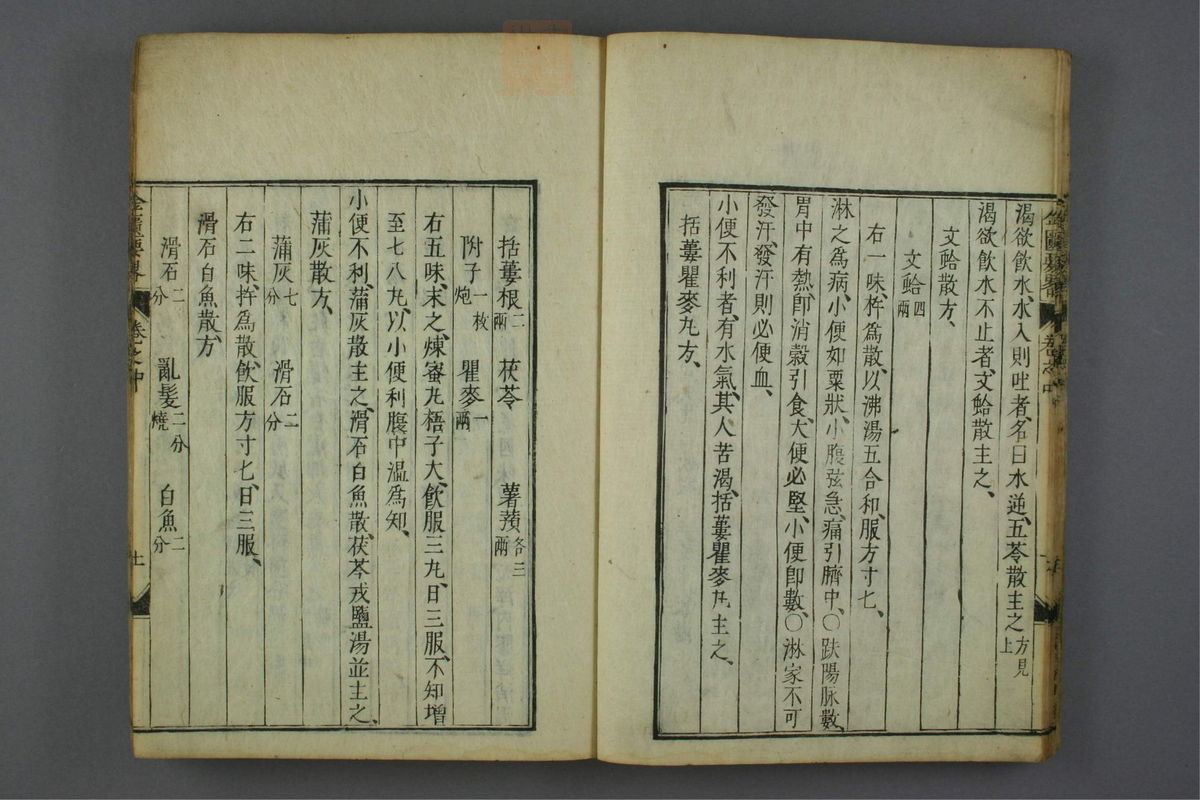 渴欲飲水、水入則吐者、名曰水逆、五苓散主之、方見上
渴欲飲水不止者、文蛤散主之、
文蛤散方、
文蛤四兩
右一味、杵爲散、以沸湯五合和、服方寸匕、
淋之爲病、小便如粟狀、小腹弦急、痛引臍中、〇趺陽脉數、
胃中有熱、卽消穀引食、大便必堅、小便卽數、〇淋家不可
發汗、發汗則必便血、
小便不利者、有水氣、其人苦渴、括蔞瞿麥丸主之、
括蔞瞿麥丸方、
括蔞根二兩 茯苓 薯蕷各三兩
附子一枚炮 瞿麥一兩
右五味、末之、煉蜜丸梧子大、飲服三丸、日三服、不知增
至七八丸、以小便利腹中溫爲知、
小便不利、蒲灰散主之、滑石白魚散、茯苓戎鹽湯並主之、
蒲灰散方、
蒲灰七分 滑石二分
右二味、杵爲散、飲服方寸匕、日三服、
滑石白魚散、方
滑石二分 亂髮二分燒 白魚二分
金匱要畧 卷之中 十一